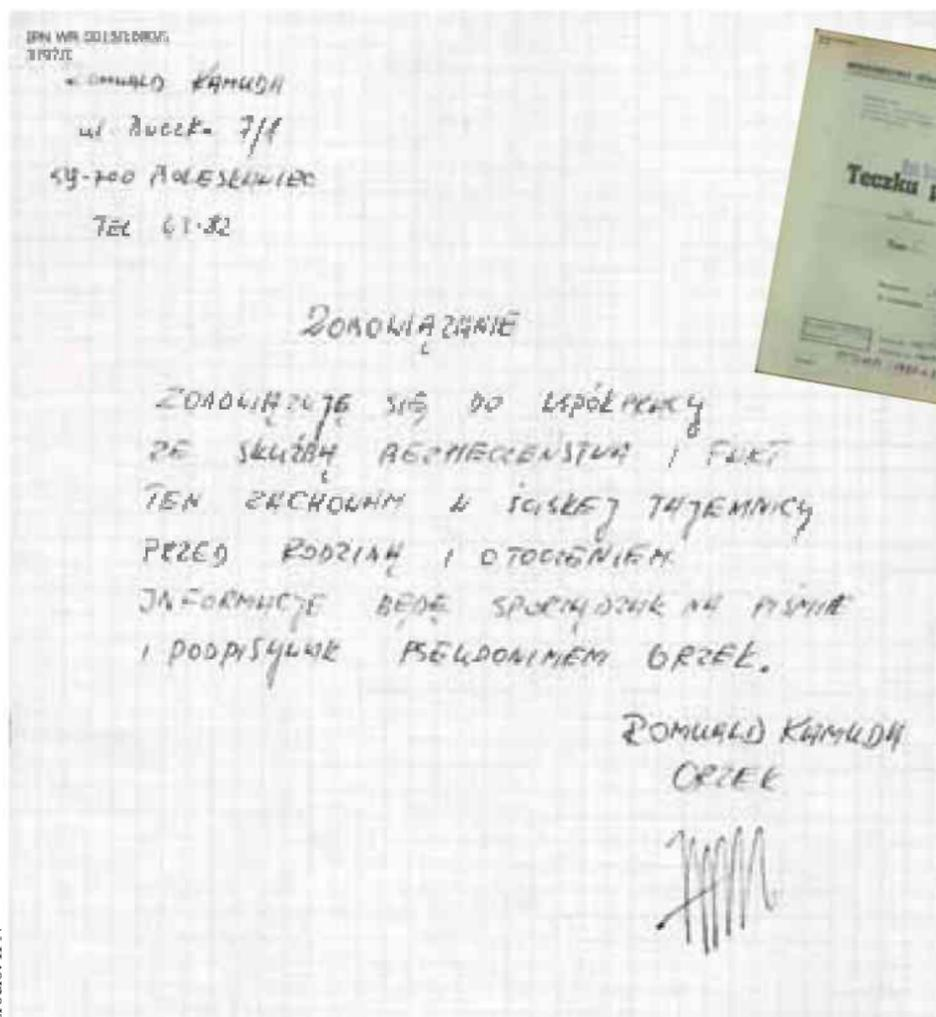 ROMUALD KAMUDA
ul Buczka 7/1
59-700 BOLESŁAWIEC
TEL 61-82
ZOBOWIĄZANIE
ZOBOWIĄZUJĘ SIĘ DO WSPÓŁPRACY
ZE SŁUŻBĄ BEZPIECZEŃSTWA I FAKT
TEN ZACHOWAM W ŚCISŁEJ TAJEMNICY
PRZED RODZINĄ I OTOCZENIEM.
INFORMACJE BĘDĘ SPORZĄDZAŁ NA PIŚMIE
I PODPISYWAŁ PSEUDONIMEM ORZEŁ.
ROMUALD KAMUDA
ORZEŁ
Teczka p